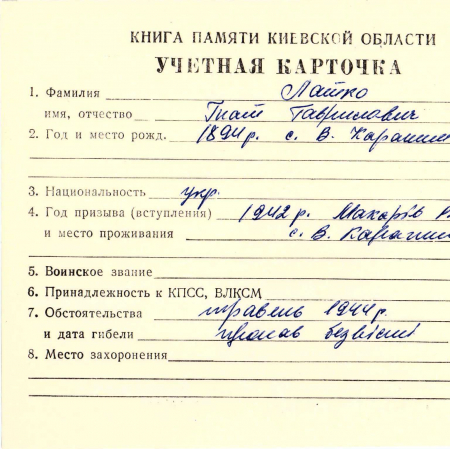 КНИГА ПАМЯТИ КИЕВСКОЙ ОБЛАСТИ
УЧЕТНАЯ КАРТОЧКА
1. Фамилия Лайко
имя, отчество Гнат Гаврилович
2. Год и место рожд. 1894 р. с. В. Карашин
3. Национальность укр.
4. Год призыва (вступления) 1942 р. Макарів
и место проживания с. В. Карашин
5. Воинское звание
6. Принадлежность к КПСС, ВЛКСМ
7. Обстоятельства травень 1944 р.
и дата гибели пропав безвісті
8. Место захоронения